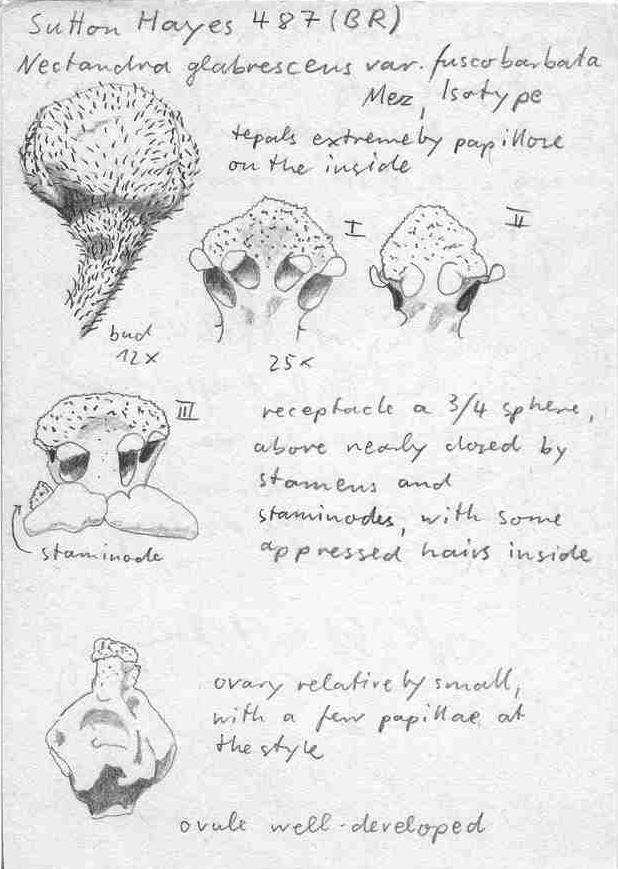 Sutton Hayes 487 (BR)
Nectandra glabrescens var. fuscobarbata
Mez, Isotype
tepals extremely papillose
on the inside
I
II
bud
12x
25x
III
receptacle a 3/4 sphere,
above nearly closed by
stamens and
staminodes, with some
appressed hairs inside
staminode
ovary relatively small,
with a few papillae at
the style
ovule well-developed